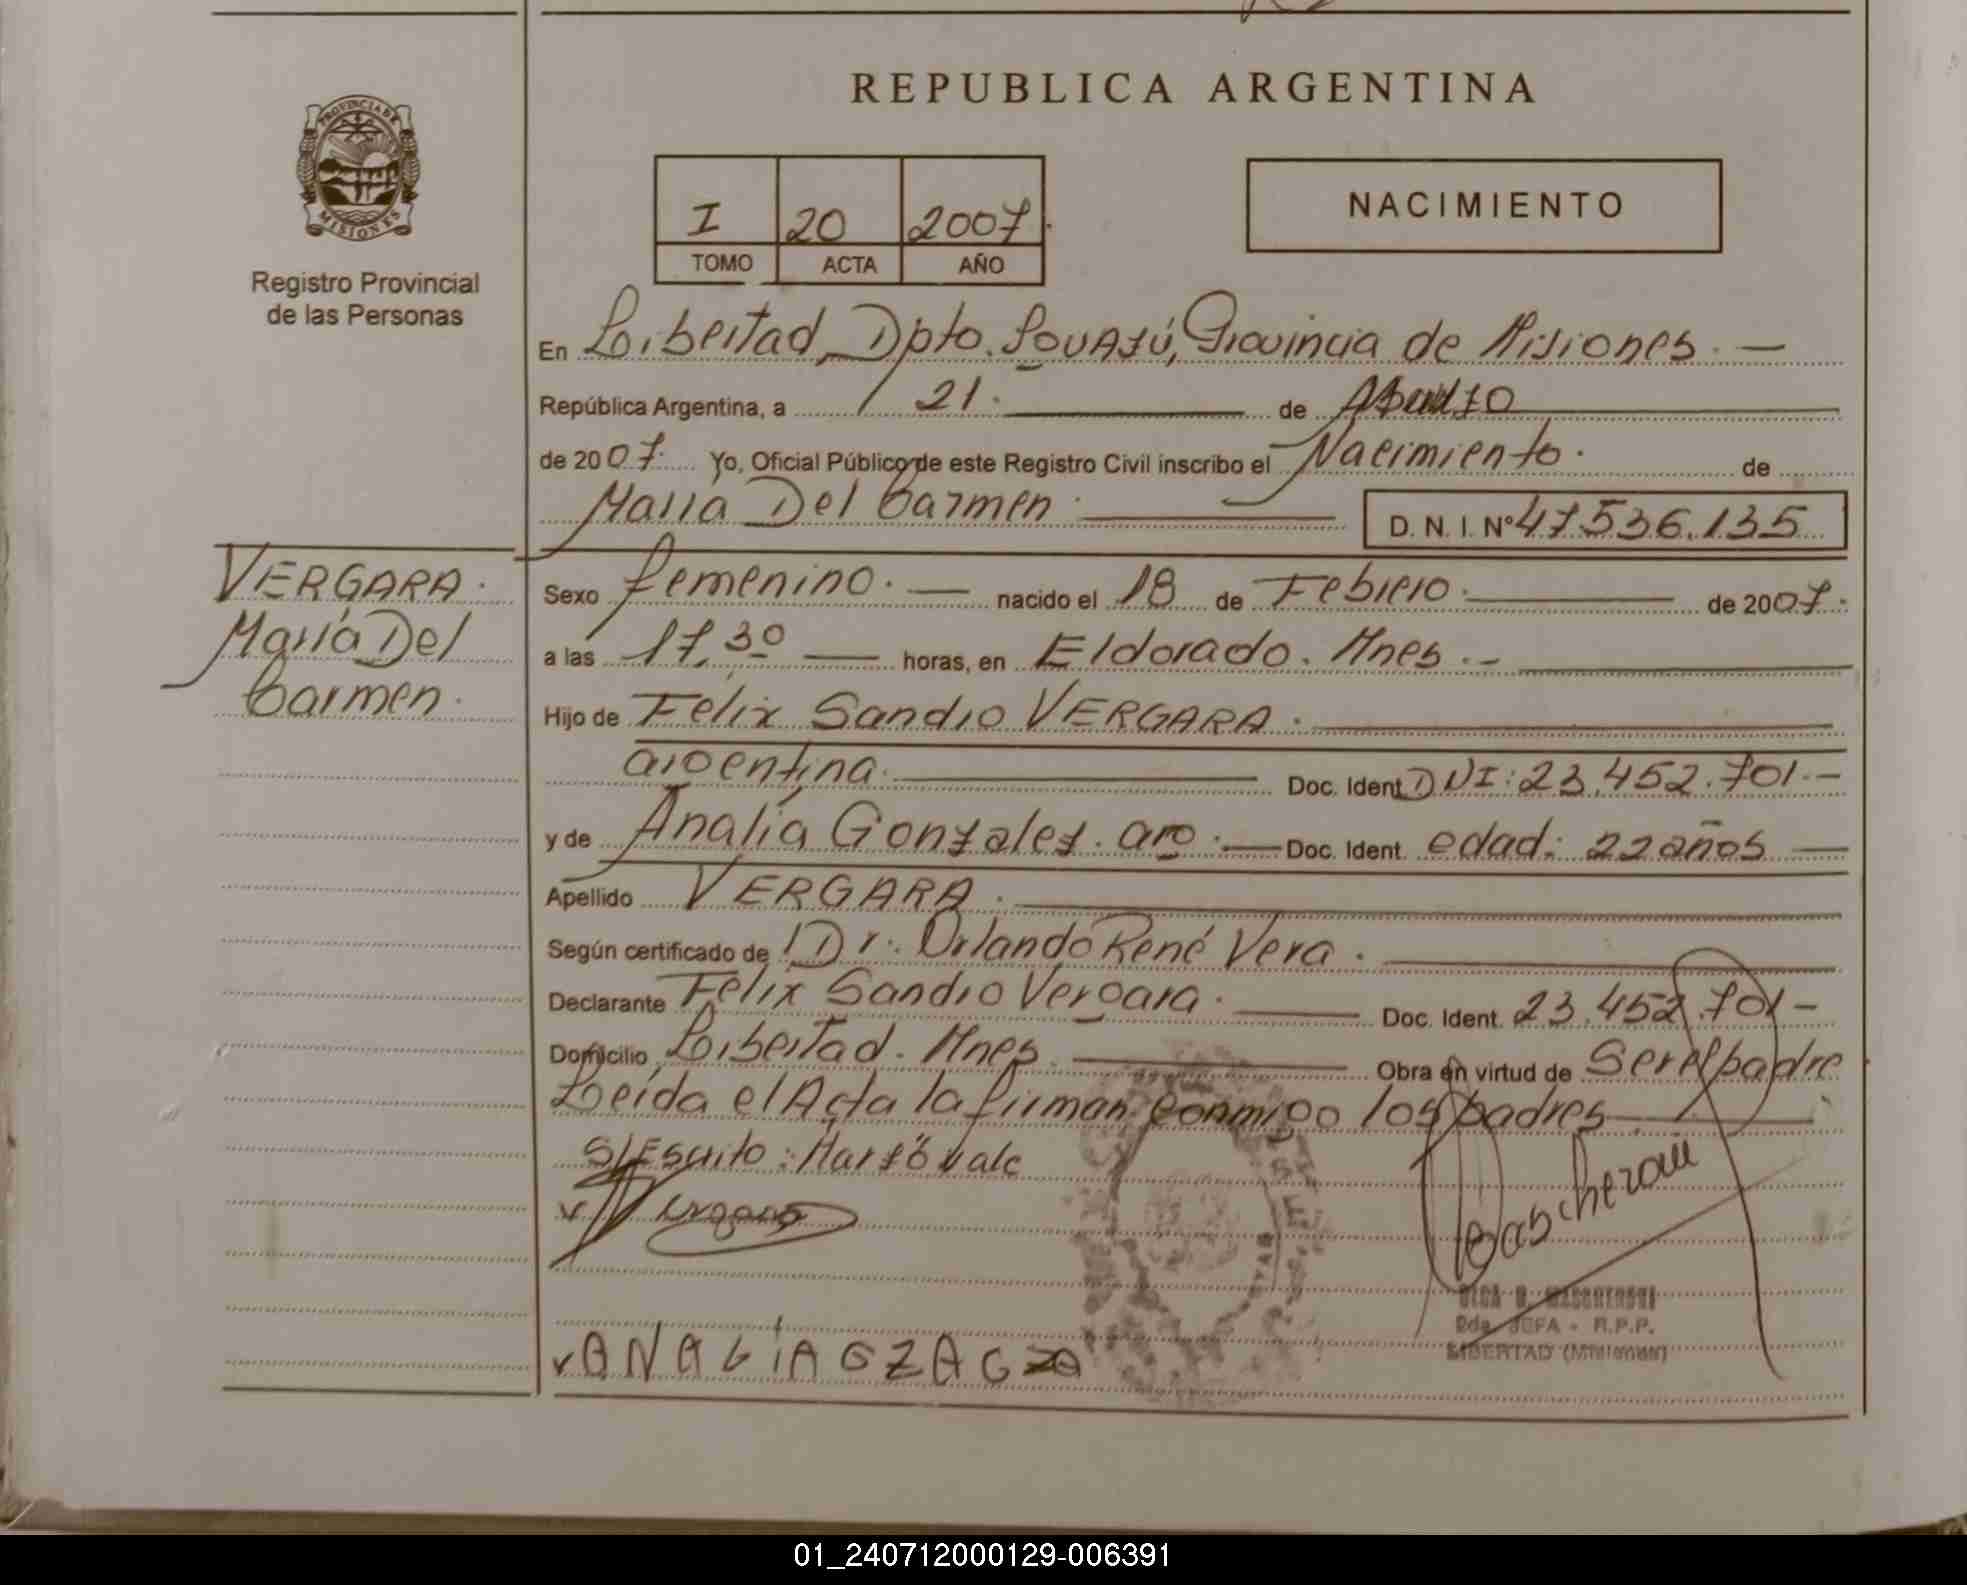 REPUBLICA ARGENTINA
PROVINCIA DE MISIONES
Registro Provincial
de las Personas
I 20 2007.
TOMO ACTA AÑO
NACIMIENTO
En Libertad, Dpto. Iguazú, Provincia de Misiones. —
República Argentina, a 21. de
de 2007. Yo, Oficial Público de este Registro Civil inscribo el Nacimiento. de
María Del Carmen. D. N. I. Nº 47.536.135
VERGARA.
María Del
Carmen.
Sexo femenino. — nacido el 18 de Febrero. de 2007.
a las 17,30 — horas, en Eldorado. Mnes. -
Hijo de Felix Sandro VERGARA.
argentina. Doc. Ident. DNI: 23.452.701. -
y de Analía Gonzalez. arg. — Doc. Ident. edad: 22 años —
Apellido VERGARA.
Según certificado de Dr. Orlando René Vera.
Declarante Felix Sandro Vergara. — Doc. Ident. 23.452.701 -
Domicilio Libertad. Mnes. Obra en virtud de Ser el padre
Leída el Acta la firman conmigo los padres
S/Escrito: Marzo vale
ANALIA GZAGZ
2da. JEFA - R.P.P.
LIBERTAD (Misiones)
01_240712000129-006391